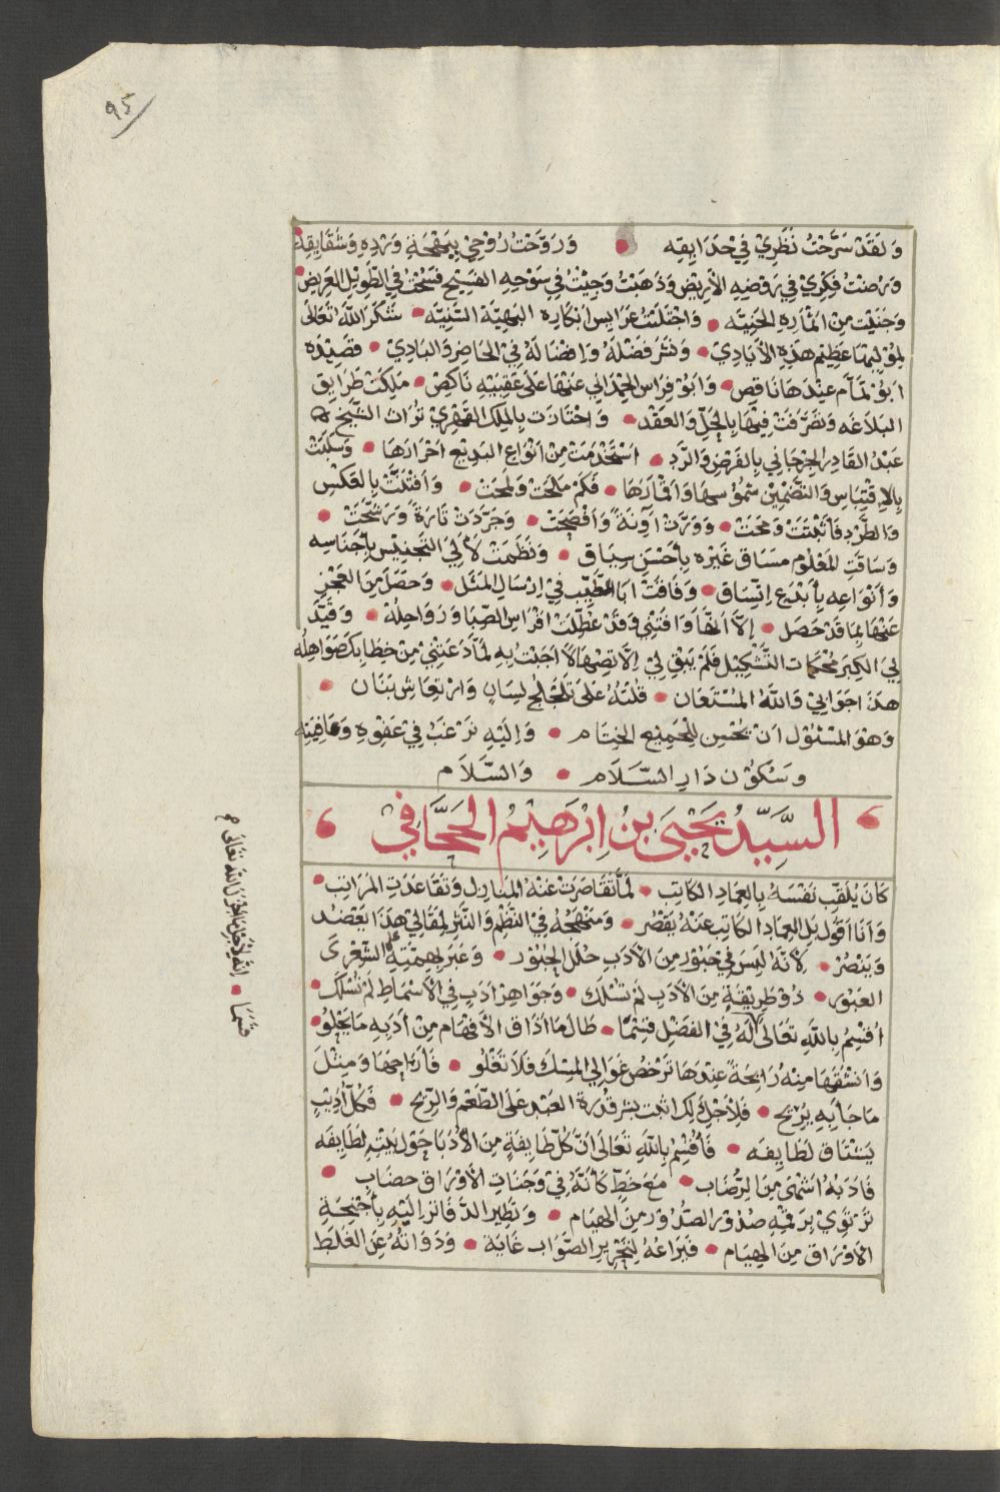 ٩٥
ولقد سرحت نظري في حدايقه • وروحت روحي بصفحة ورده وشقايقه
ورضت فكري في روضه الأريض وذهبت وجيت في سوحه الفسيح فسحت في الطويل العريض
وجنيت من اثماره الجنيه • واجتليت عرايس ابكاره البهية السنيه • شكر الله تعالى
لموليها عظيم هذه الأيادي • ونشر فضله وافضاله في الحاضر والبادي • قصيده
ابو تمام عندها ناقص • وابو فراس الحمداني عنها على عقبيه ناكص • ملكت طرايق
البلاغه وتصرفت فيها بالحل والعقد • واختارت بالملك القهري تراث الشيخ
عبد القادر الجرجاني بالفرض والرد • استخدمت من انواع البديع احرارها • وسلبت
بالاقتباس والتضمين شموسها واقمارها • فكم ملحت ولمحت • وافتنت بالعكس
والطرد فأثبتت ومحت • وورت آونة وأفصحت • وجردت تارة ورشحت •
وساقت المعلوم مساق غيره بأحسن سياق • ونظمت لآلي التجنيس بأجناسه
وأنواعه بأبدع اتساق • وفاقت ابا الطيب في ارسال المثل • وحصل من العجز
عنها ما قد حصل • إلا أنها وافتني وقد عطلت افراس الصبا ورواحله • وقيد
لي الكبر محكمات التشكيل فلم يبق لي إلا تصهالا اجبت به لما دعتني من خطابك صواهله
هذا جوابي والله المستعان • قلته على تلجلج لسان وارتعاش بنان •
وهو المسئول ان يحسن للجميع الختام • وإليه نرغب في عفوه وعافيته
وسكون دار السلام • والسلام
السيد يحيى بن ابرهيم الجحافي
كان يلقب نفسه بالعماد الكاتب • لما تقاصرت عنه المنازل وتقاعدت المراتب •
وانا اقول بل العماد الكاتب عنه يقصر • ومنهجه في النظم والنثر لمقالي هذا يعضد
وينصر • لأنه لبس في حبور من الأدب حلل الحبور • وعبر بهمته على الشعرى
العبور • ذو طريقة من الأدب لم تسلك • وجواهر ادب في الأسماط لم تسلك •
اقسم بالله تعالى له في الفضل قسما • طالما اذاق الأفهام من أدبه ما يحلو •
وانشقها منه رايحة عندها ترخص غوالي المسك فلا تغلو • فأريحها ومثل
ما جأ به يريح • فلأجل ذلك اثبت بشر قدرة العبد على الطعم والريح • فكل أديب
يشتاق لطايفه • فأقسم بالله تعالى ان كل طايفة من الأدبا حول بيت لطايفه
فادبه اشهى من الرضاب • مع خط كأنه في وجنات الأوراق خضاب •
ترتوي برقمه صدور الصدور من الهيام • وتطير الدفاتر اليه بأجنحة
الأوراق من الهيام • فيراعه لتحرير الصواب غاية • ودواته عن الغلط
قسما •